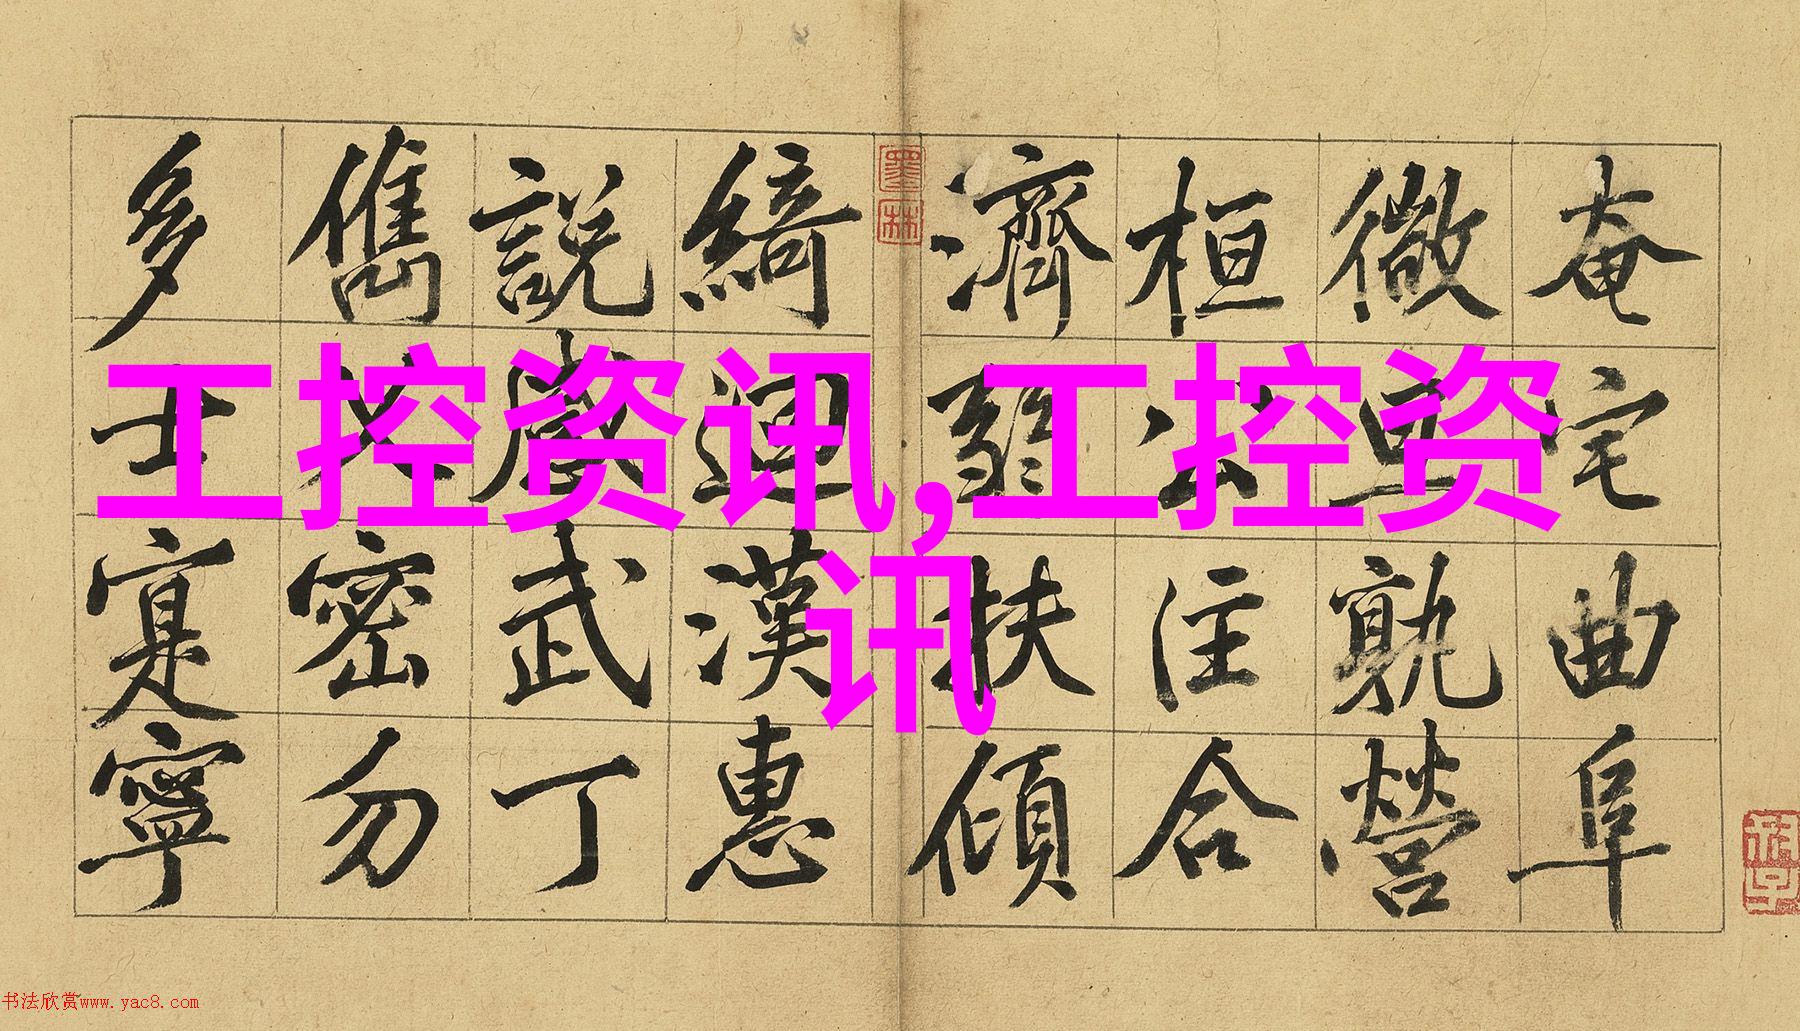 工控资讯,工控资
讯
奄宅曲阜
微旦孰營
桓公匡合
濟弱扶傾
綺迴漢惠
說感武丁
儁乂密勿
多士寔寧
墨林
书法欣赏www.yac8.com